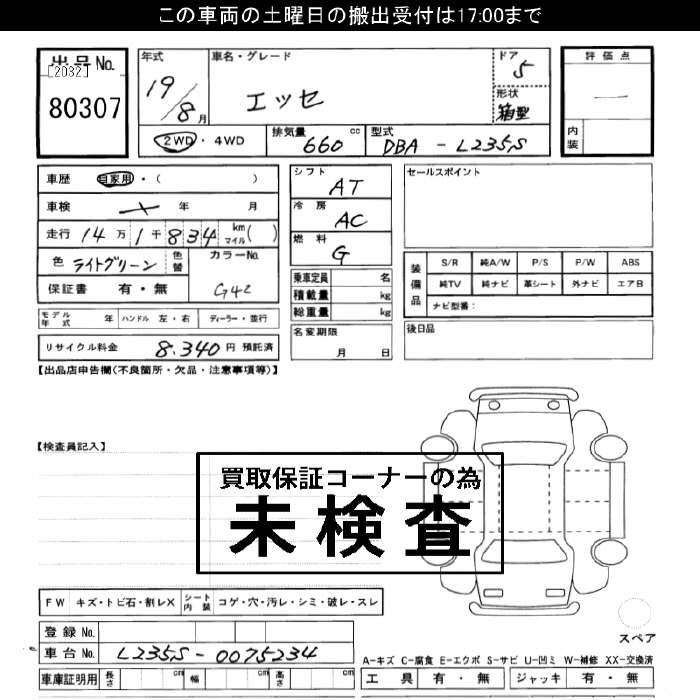 この車両の土曜日の搬出受付は17:00まで
出品No.
[2032]
80307
年式
19/8月
車名・グレード
エッセ
ドア
5
形状
箱型
評価点
—
内装
2WD・4WD
排気量 660 cc
型式 DBA-L235S
車歴 自家用・( )
車検 年 月
走行 14万1千834 km マイル( )
色 ライトグリーン 色替
カラーNo.
G42
保証書 有・無
モデル年式 年 ハンドル 左・右 ディーラー・並行
リサイクル料金 8,340 円 預託済
シフト
AT
冷房
AC
燃料
G
乗車定員 名
積載量 kg
総重量 kg
名変期限
月 日
セールスポイント
装備品
S/R 純A/W P/S P/W ABS
純TV 純ナビ 革シート 外ナビ エアB
ナビ型番:
後日品
【出品店申告欄(不良箇所・欠品・注意事項等)】
【検査員記入】
買取保証コーナーの為
未検査
FW キズ・トビ石・割レX シート内装 コゲ・穴・汚レ・シミ・破レ・スレ
登録No.
車台No. L235S-0075234
車庫証明用 長さ cm 幅 cm 高さ cm
スペア
A-キズ C-腐食 E-エクボ S-サビ U-凹ミ W-補修 XX-交換済
工具 有・無 ジャッキ 有・無